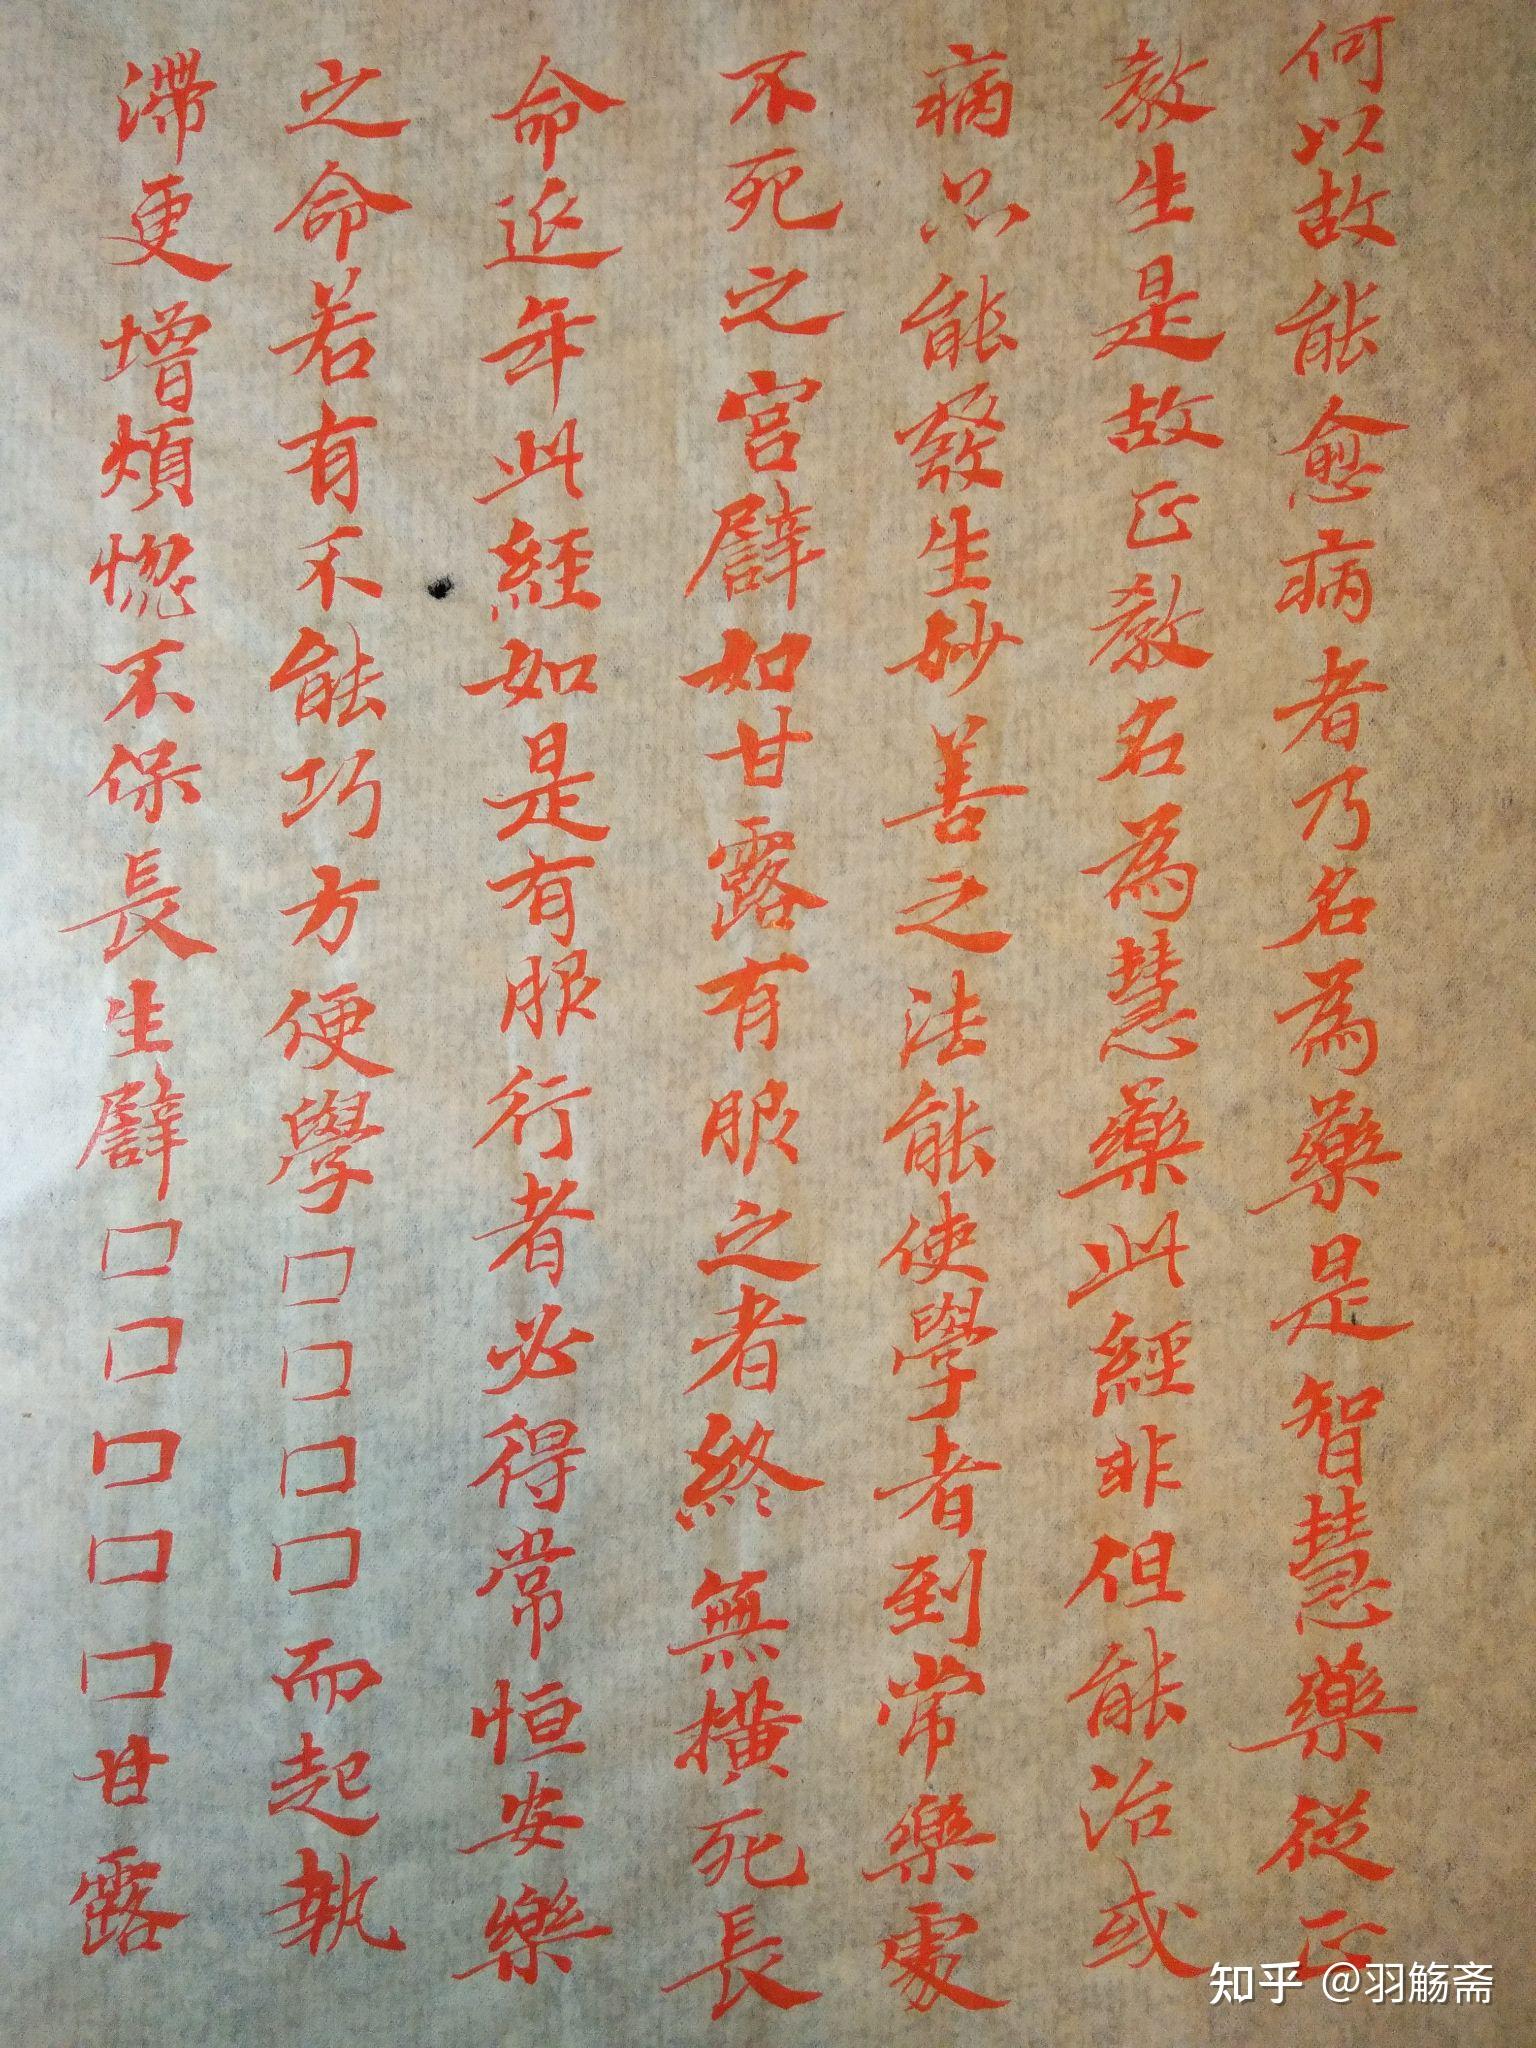 何以故能愈病者乃名為藥是智慧藥從正
教生是故正教名為慧藥此經非但能治或
病亦能發生妙善之法能使學者到常樂處
不死之宮譬如甘露有服之者終無橫死長
命延年此經如是有服行者必得常恒安樂
之命若有不能巧方便學口口口口而起執
滯更增煩惚不保長生譬口口口口口甘露
知乎 @羽觞斋